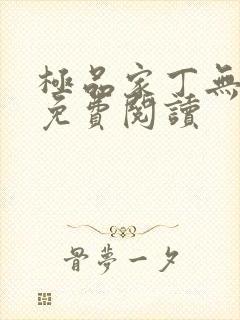 極品家丁無
免費閱讀
骨夢一夕